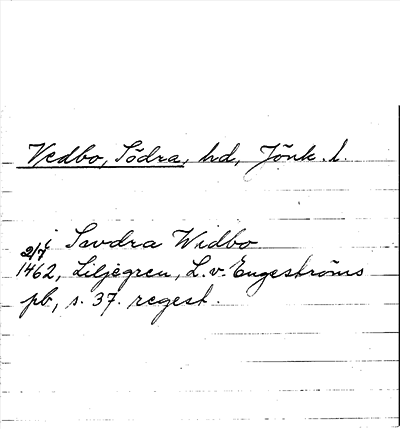 Vedbo, Södra, hd, Jönk. l.
i Sudra Widbo
2/7
1462, Liljegren, L. v. Engeströms
pb, s. 37. regest.